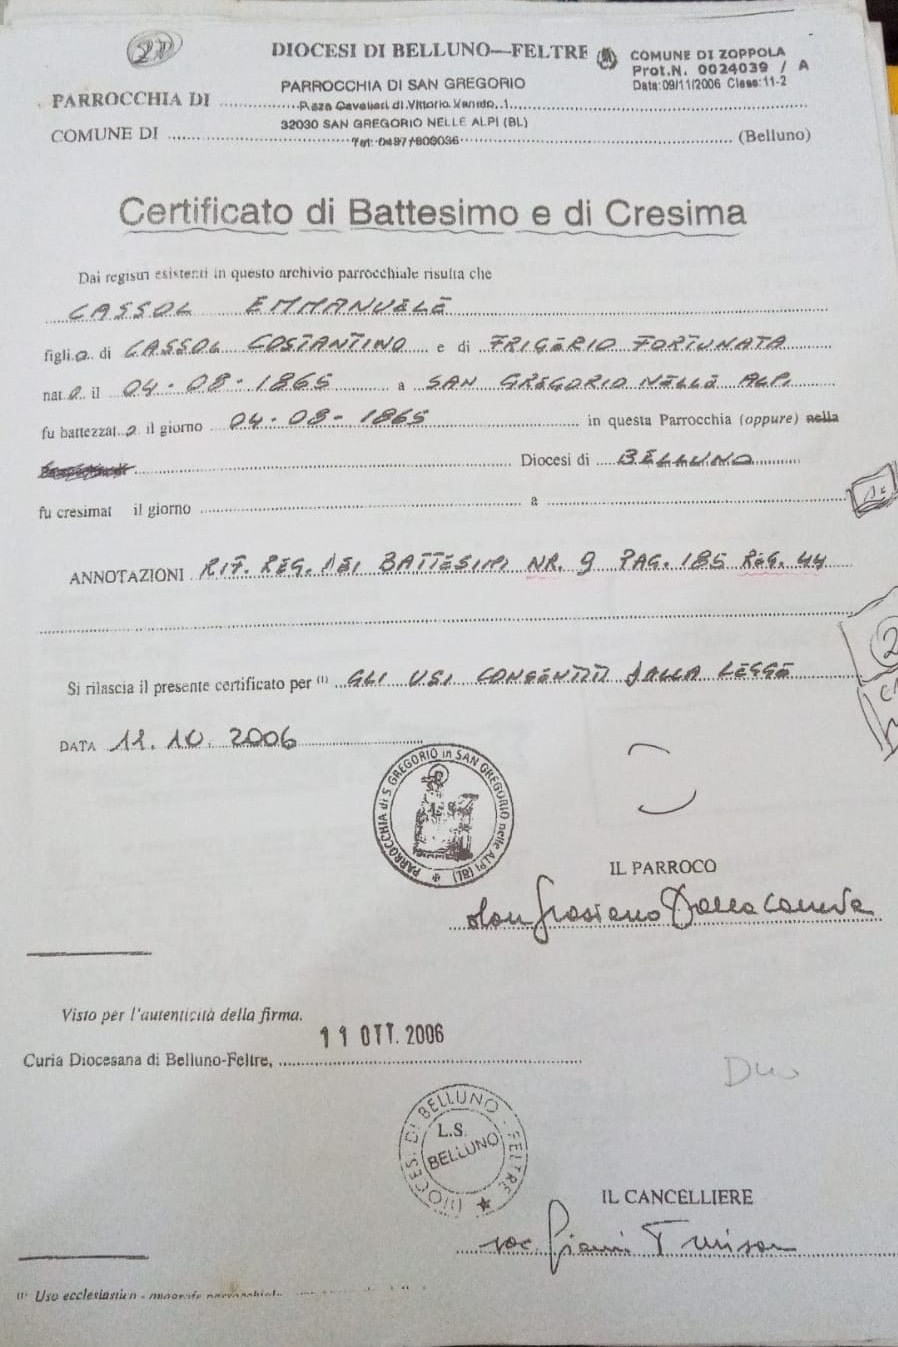 22
DIOCESI DI BELLUNO—FELTRE
COMUNE DI ZOPPOLA
Prot.N. 0024039 / A
Data:09/11/2006 Class:11-2
PARROCCHIA DI SAN GREGORIO
PARROCCHIA DI
COMUNE DI
32030 SAN GREGORIO NELLE ALPI (BL)
(Belluno)
Certificato di Battesimo e di Cresima
Dai registri esistenti in questo archivio parrocchiale risulta che
CASSOL EMMANUELE
figli.o. di CASSOL COSTANTINO e di FRIGERIO FORTUNATA
nat.o. il 04.08.1865 a SAN GREGORIO NELLE ALPI
fu battezzat..o il giorno 04.08-1865 in questa Parrocchia (oppure) nella
Diocesi di BELLUNO
fu cresimat il giorno a
ANNOTAZIONI RIF. REG. DEI BATTESIMI NR. 9 PAG. 185 REG. 44
2
Si rilascia il presente certificato per (1) GLI USI CONSENTITI DALLA LEGGE
DATA 11.10.2006
PARROCCHIA di S. GREGORIO in SAN GREGORIO nelle ALPI (BL)
IL PARROCO
don
Visto per l'autenticità della firma.
11 OTT. 2006
Curia Diocesana di Belluno-Feltre,
DIOCESI DI BELLUNO - FELTRE
L.S.
BELLUNO
IL CANCELLIERE
(1) Uso ecclesiastico -